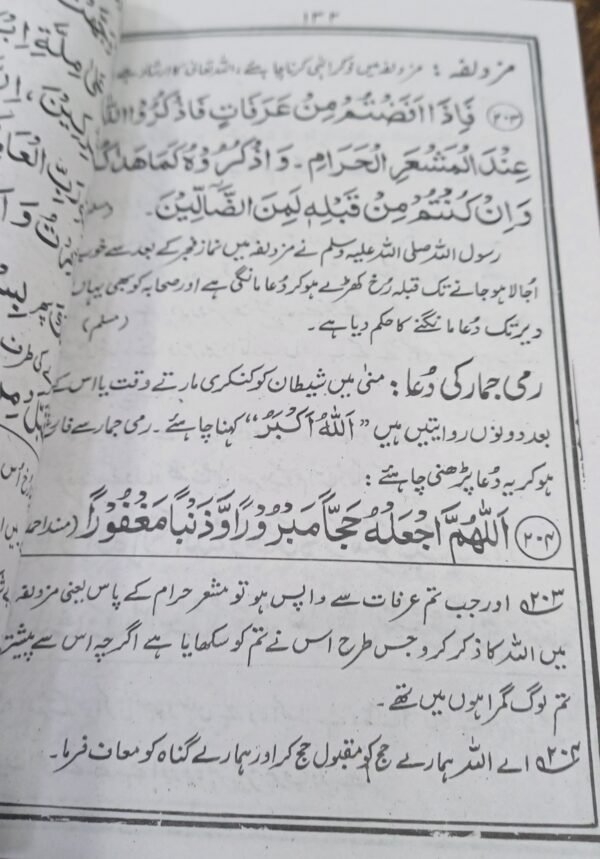 ۱۳۲
مزدلفہ : مزدلفہ میں ذکر الٰہی کرنا چاہئے ، اللہ تعالیٰ کا ارشاد ہے
۲۰۳ فَاِذَا اَفَضْتُمْ مِنْ عَرَفَاتٍ فَاذْكُرُوا اللّٰهَ
عِنْدَ الْمَشْعَرِ الْحَرَامِ ۔ وَاذْكُرُوْهُ كَمَا هَدٰكُمْ
وَاِنْ كُنْتُمْ مِنْ قَبْلِهٖ لَمِنَ الضَّالِّيْنَ ۔ (مسلم)
رسول اللہ صلی اللہ علیہ وسلم نے مزدلفہ میں نماز فجر کے بعد سے خوب
اجالا ہو جانے تک قبلہ رُخ کھڑے ہو کر دُعا مانگی ہے اور صحابہ کو بھی یہاں
دیر تک دُعا مانگنے کا حکم دیا ہے ۔ (مسلم)
رمی جمار کی دُعا : منیٰ میں شیطان کو کنکری مارتے وقت یا اس کے
بعد دونوں روایتیں ہیں “اَللّٰهُ اَكْبَرُ” کہنا چاہئے ۔ رمی جمار سے فارغ
ہو کر یہ دُعا پڑھنی چاہئے :
۲۰۴ اَللّٰهُمَّ اجْعَلْهُ حَجًّا مَبْرُوْرًا وَّذَنْبًا مَغْفُوْرًا (مسند احمد
۲۰۳ اور جب تم عرفات سے واپس ہو تو مشعر حرام کے پاس یعنی مزدلفہ
میں اللہ کا ذکر کرو جس طرح اس نے تم کو سکھایا ہے اگرچہ اس سے پیشتر
تم لوگ گمراہوں میں تھے ۔
۲۰۴ اے اللہ ہمارے حج کو مقبول حج کر اور ہمارے گناہ کو معاف فرما ۔